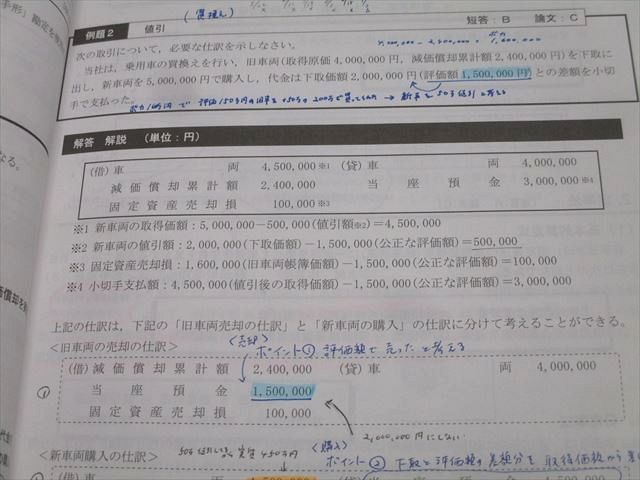 手形」勘定を
(買換え)
例題2 値引 短答:B 論文:C
次の取引について,必要な仕訳を示しなさい。
4,000,000 - 2,400,000 = 1,600,000
当社は,乗用車の買換えを行い,旧車両(取得原価 4,000,000円,減価償却累計額 2,400,000円)を下取に
出し,新車両を 5,000,000円で購入し,代金は下取価額 2,000,000円(評価額 1,500,000円)との差額を小切
手で支払った。
→ 新車を50万値引と考える
解答 解説 (単位:円)
(借)車 両 4,500,000※1 (貸)車 両 4,000,000
減価償却累計額 2,400,000 当座預金 3,000,000※4
固定資産売却損 100,000※3
なる。
※1 新車両の取得価額:5,000,000-500,000(値引額※2)=4,500,000
※2 新車両の値引額:2,000,000(下取価額)-1,500,000(公正な評価額)=500,000
※3 固定資産売却損:1,600,000(旧車両帳簿価額)-1,500,000(公正な評価額)=100,000
※4 小切手支払額:4,500,000(値引後の取得価額)-1,500,000(公正な評価額)=3,000,000
上記の仕訳は,下記の「旧車両売却の仕訳」と「新車両の購入」の仕訳に分けて考えることができる。
<旧車両の売却の仕訳>
<売却>
ポイント① 評価額で売ったと考える
(借)減価償却累計額 2,400,000 (貸)車 両 4,000,000
① 当座預金 1,500,000
固定資産売却損 100,000
2,000,000円にしない
<新車両購入の仕訳>
<購入>
ポイント② 下取と評価額の差額分を取得価額から